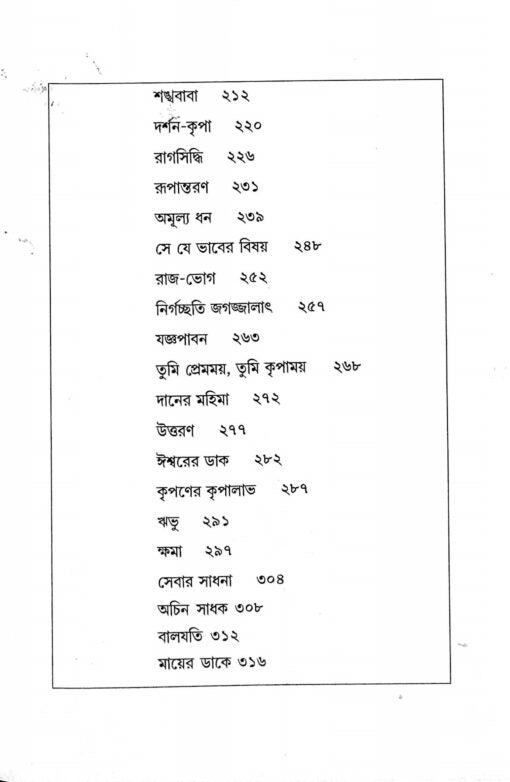 শঙ্খবাবা ২১২
দর্শন-কৃপা ২২০
রাগসিদ্ধি ২২৬
রূপান্তরণ ২৩১
অমূল্য ধন ২৩৯
সে যে ভাবের বিষয় ২৪৮
রাজ-ভোগ ২৫২
নির্গচ্ছতি জগজ্জালাৎ ২৫৭
যজ্ঞপাবন ২৬৩
তুমি প্রেমময়, তুমি কৃপাময় ২৬৮
দানের মহিমা ২৭২
উত্তরণ ২৭৭
ঈশ্বরের ডাক ২৮২
কৃপণের কৃপালাভ ২৮৭
ঋভু ২৯১
ক্ষমা ২৯৭
সেবার সাধনা ৩০৪
অচিন সাধক ৩০৮
বালযতি ৩১২
মায়ের ডাকে ৩১৬